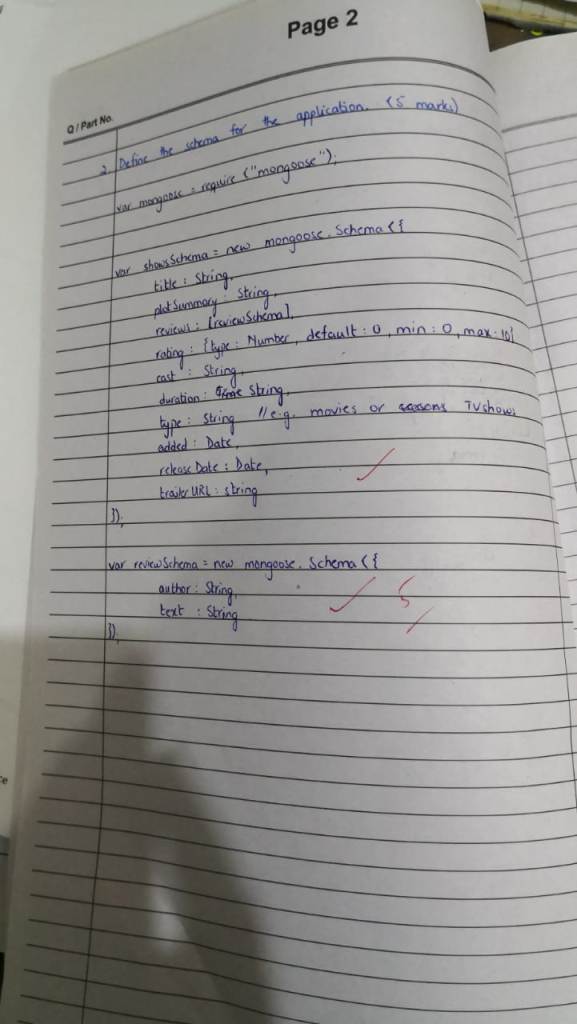 Page 2
Q / Part No.
2. Define the schema for the application. (5 marks)
var mongoose = require ("mongoose");
var showsSchema = new mongoose. Schema ({
title : String,
plotSummary : String,
reviews : [reviewSchema],
rating : {type : Number, default : 0, min : 0, max : 10}
cast : String,
duration : String,
type : String // e.g. movies or TV shows
added : Date,
releaseDate : Date,
trailerURL : string
});
var reviewSchema = new mongoose. Schema ({
author : String,
text : String
5
});